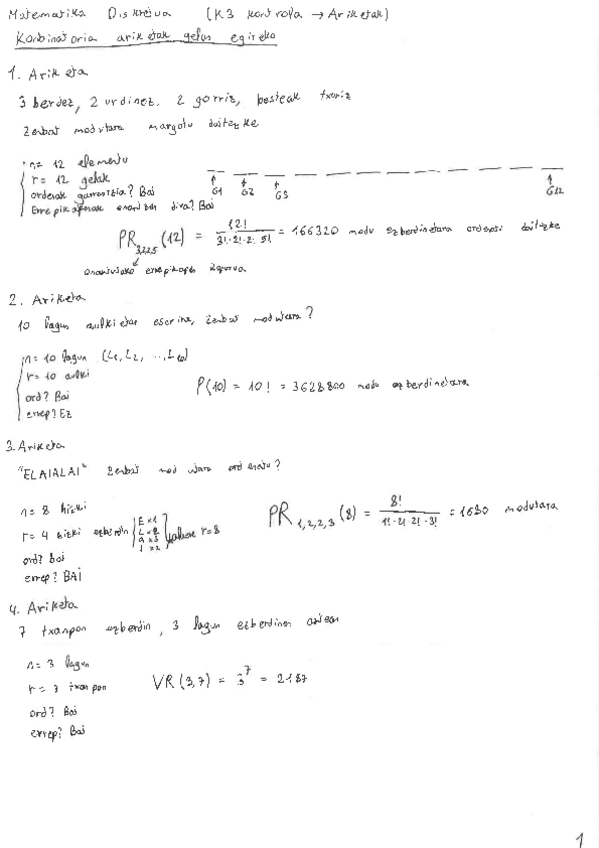 Matematika Diskretua (K3 kontrola → Ariketak)
Konbinatoria ariketak gelan egiteko
1. Ariketa
3 berdez, 2 urdinez, 2 gorriz, besteak txuriz
Zenbat modutara margotu daitezke
n = 12 elementu
r = 12 gelak
ordenak garrantzia? Bai
Errepikapenak onartzen dira? Bai
G1 G2 G3 G12
PR3,2,2,5 (12) = 12! / 3!·2!·2!·5! = 166320 modu ezberdinetara ordenatu daitezke
errepikapen
2. Ariketa
10 lagun aulkietan eserita, zenbat modutara?
n = 10 lagun (L1, L2, ..., L10)
r = 10 aulki
ord? Bai
errep? Ez
P(10) = 10! = 3628800 modu ezberdinetara
3. Ariketa
"ELAIALAI" zenbat modutara ordenatu?
n = 8 hizki
r = 4 hizki ezberdin E x1 L x2 A x3 I x2 r = 8
ord? bai
errep? BAI
PR1,2,2,3 (8) = 8! / 1!·2!·2!·3! = 1680 modutara
4. Ariketa
7 txanpon ezberdin, 3 lagun ezberdinen artean
n = 3 lagun
r = 7 txanpon
ord? Bai
errep? Bai
VR(3,7) = 3^7 = 2187
1